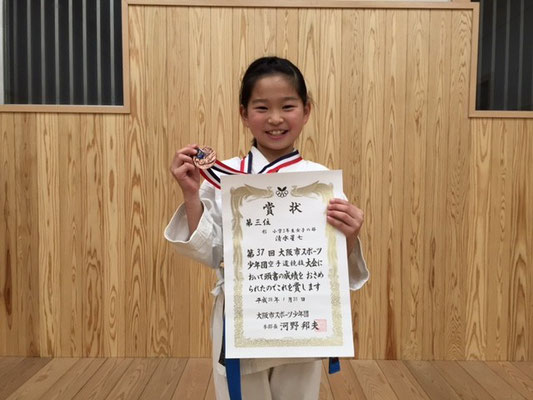 賞状
第三位
形 小学3年生女子の部
第37回大阪市スポーツ
少年団空手道競技大会に
おいて頭書の成績をおさめ
られたのでこれを賞します
大阪市スポーツ少年団
本部長 河野邦夫